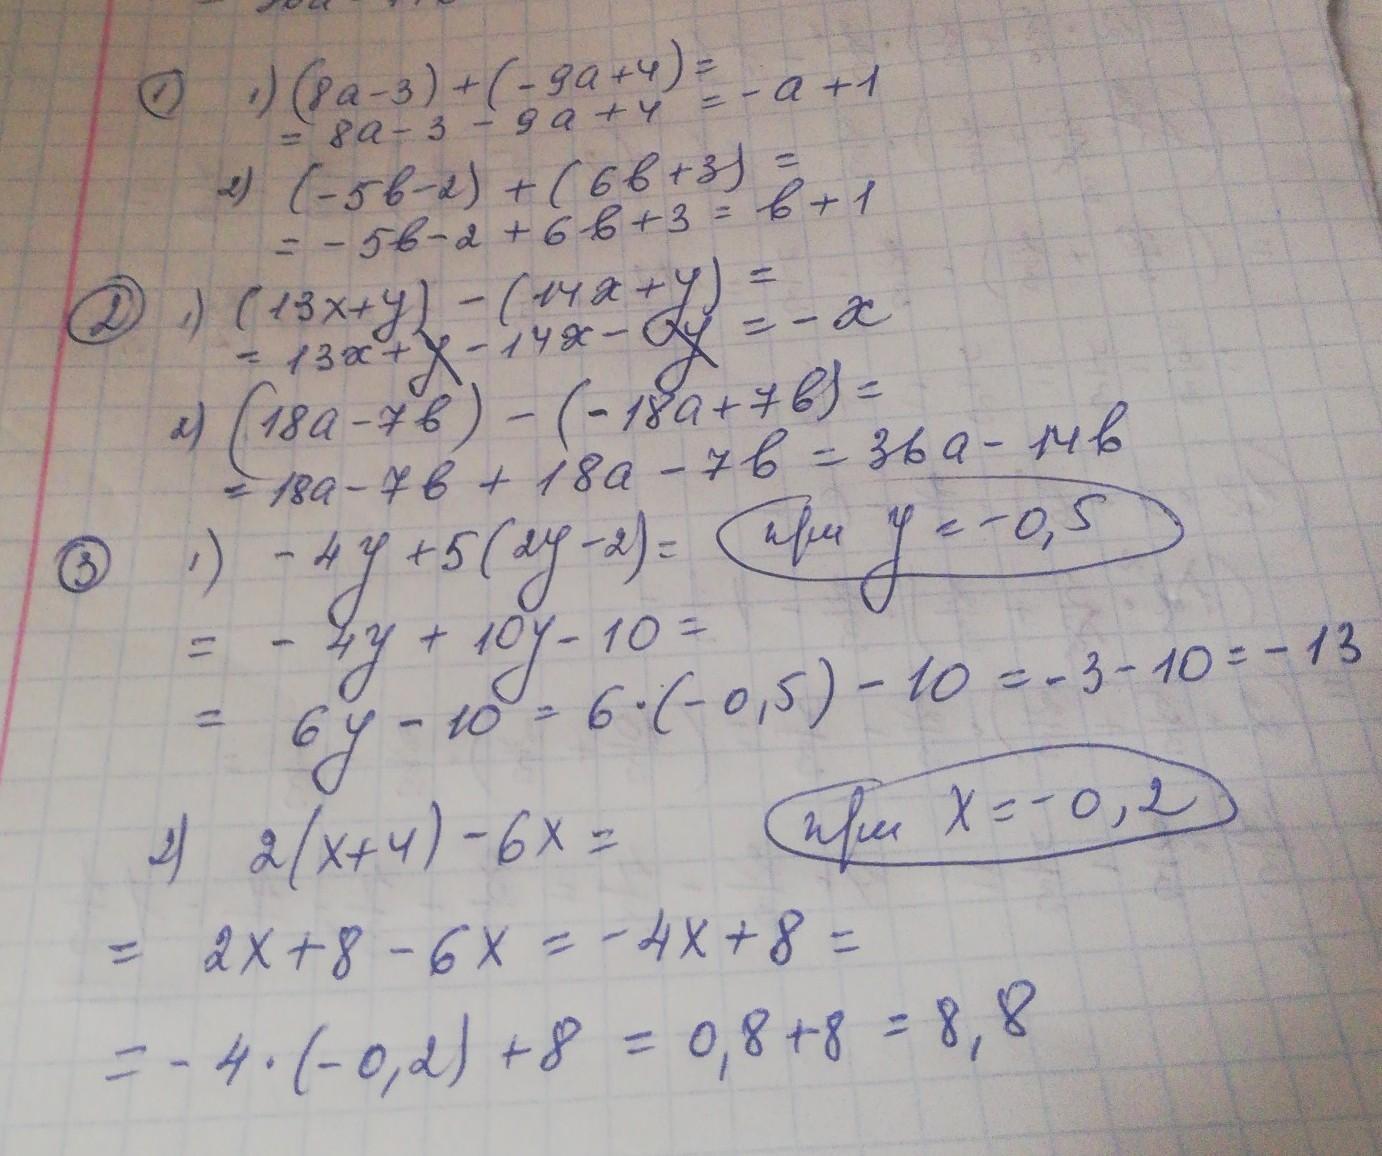 ① 1) (8a-3)+(-9a+4)=
= 8a-3-9a+4 = -a+1
2) (-5b-2)+(6b+3)=
= -5b-2+6b+3 = b+1
② 1) (13x+y)-(14x+y)=
= 13x+y-14x-y = -x
2) (18a-7b)-(-18a+7b)=
= 18a-7b+18a-7b = 36a-14b
③ 1) -4y+5(2y-2)= при y=-0,5
= -4y+10y-10=
= 6y-10 = 6·(-0,5)-10 = -3-10 = -13
2) 2(x+4)-6x= при x=-0,2
= 2x+8-6x = -4x+8 =
= -4·(-0,2)+8 = 0,8+8 = 8,8